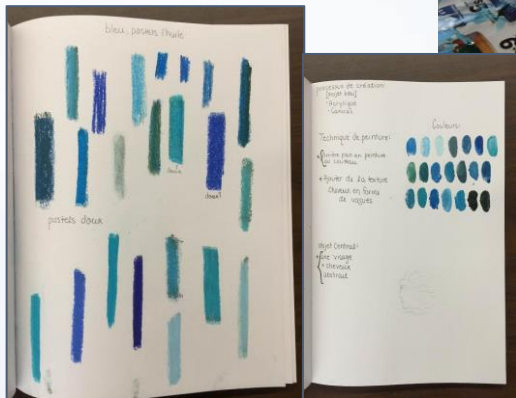 bleu, pastels l'huile
doux
doux?
pastels doux
processus de création:
[projet bleu]
- Acrylique
- Canvas
Technique de peinture:
Couleurs:
en peinture
au couteau
Ajouter de la texture
Cheveux en forme
de vagues
objet Central:
une visage
+ cheveux
abstrait